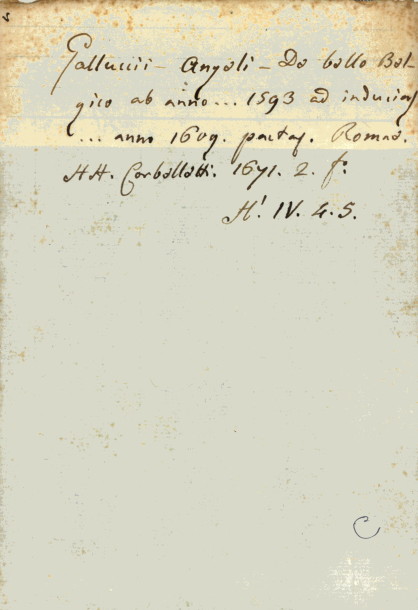 Galluccii - Angeli - De bello Bel-
gico ab anno... 1593 ad inducias
... anno 1609. pactas. Romae.
HH. Corbelletti. 1671. 2. f.
H! IV. 4. 5.
C